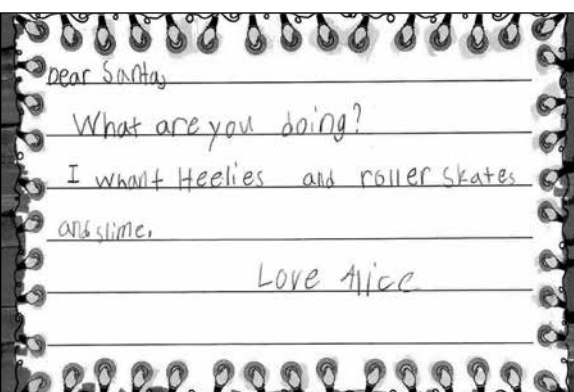 Dear Santa,
What are you doing?
I whant Heelies and roller skates
and slime.
Love Alice